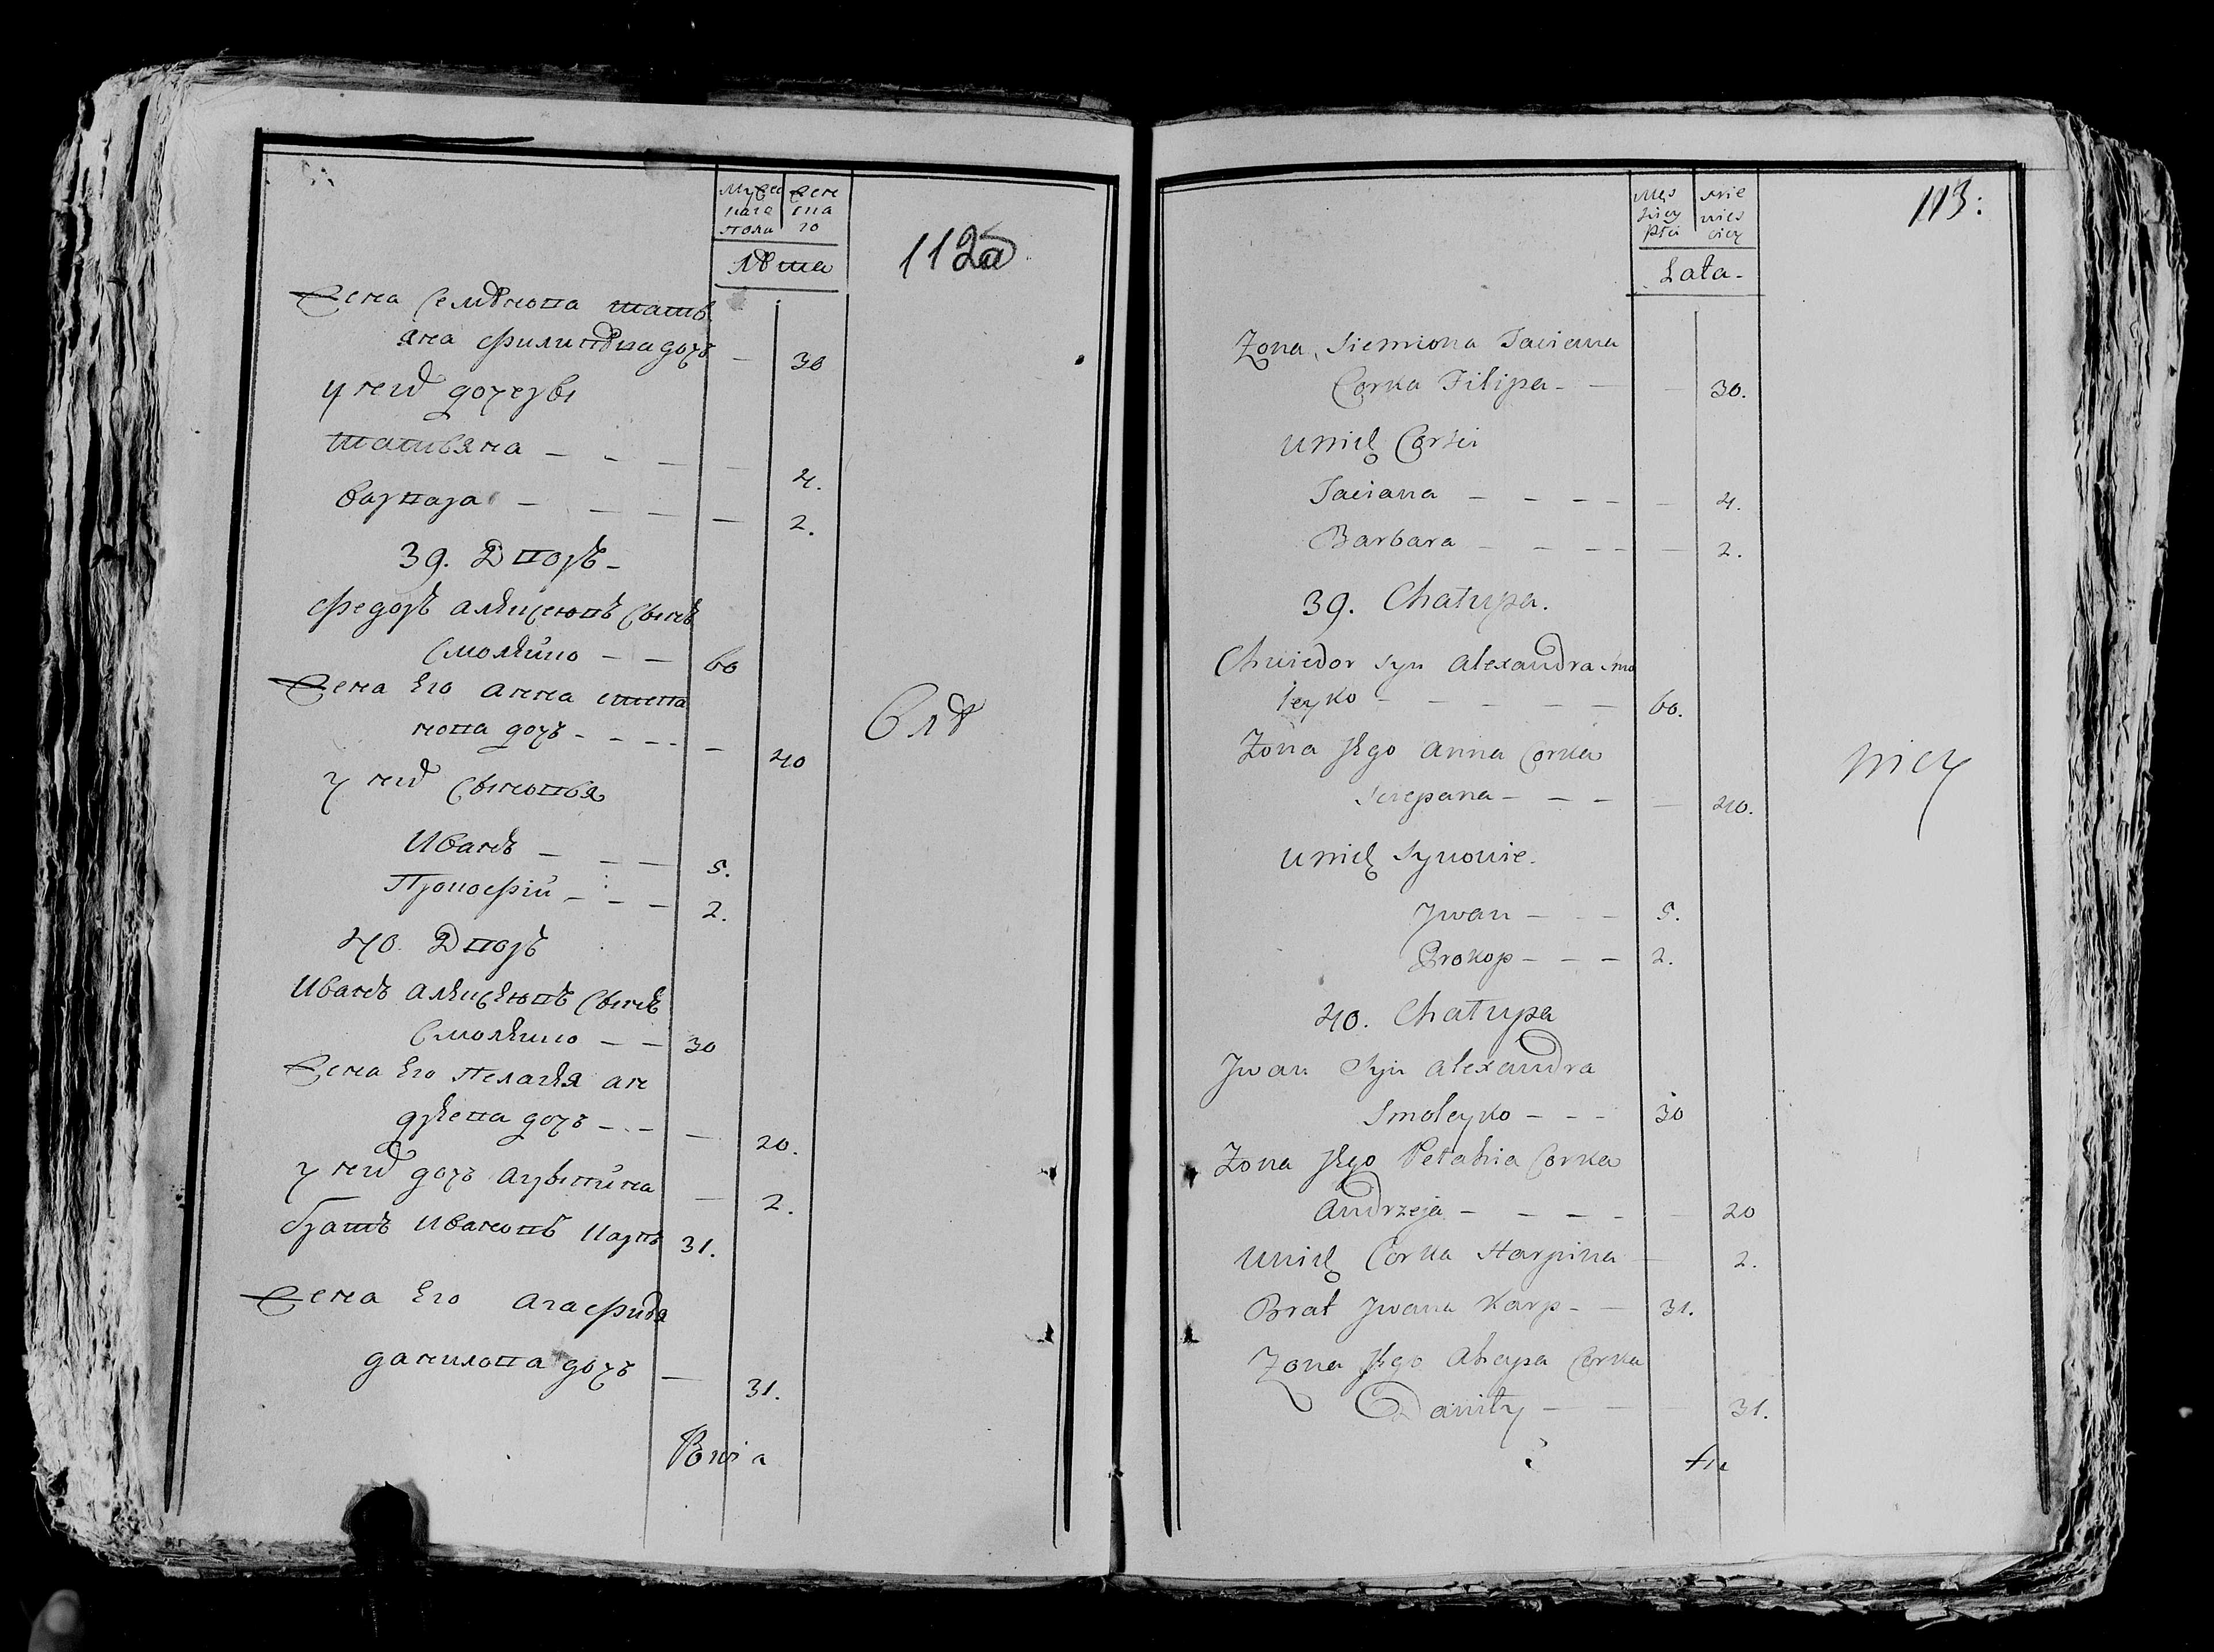 Муже Жен
ѣска ска
пола го
Лѣта
112а
Жена Семѣнова тать
яна филипѣва дочь — 30
у них дочеры
татьяна — — — — 4.
варвара — — — — 2.
39. Двохъ
Федоръ Алексеювъ сынъ
Смолейко — — 60
Жена Его Анна степа
нова дочь — — — — 40
у них сыновья
Иванъ — — — 5.
Прокофій — — — 2.
40. Дворъ
Иванъ Алексеювъ сынъ
Смолейко — — 30
Жена Его Пелагея ан
дреева дочь — — — 20.
у них дочь Агрыпина — 2.
братъ Ивановъ Карпъ 31.
Жена Его Агафия
данилова дочь — 31.
113:
Męs Nie
kiey wies
Płci ciey
Lata
Zona Siemiona Taciana
Corka Filipa — — — 30.
u nich Corki
Taciana — — — — — 4.
Barbara — — — — — 2.
39. Chatupa.
Chwiedor Syn Alexandra Smo
leyko — — — — — 60.
Zona Jego Anna Corka
Sciepana — — — — 40.
u nich Synowie.
Jwan — — — 5.
Prokop — — — 2.
40. Chatupa
Jwan Syn Alexandra
Smoleyko — — — 30
Zona Jego Pelahia Corka
Andrzeja — — — — — 20
u nich Corka Harpina — 2.
Brat Jwana Karp — — 31.
Zona Jego Ahapa Corka
Daniły — — — 31.